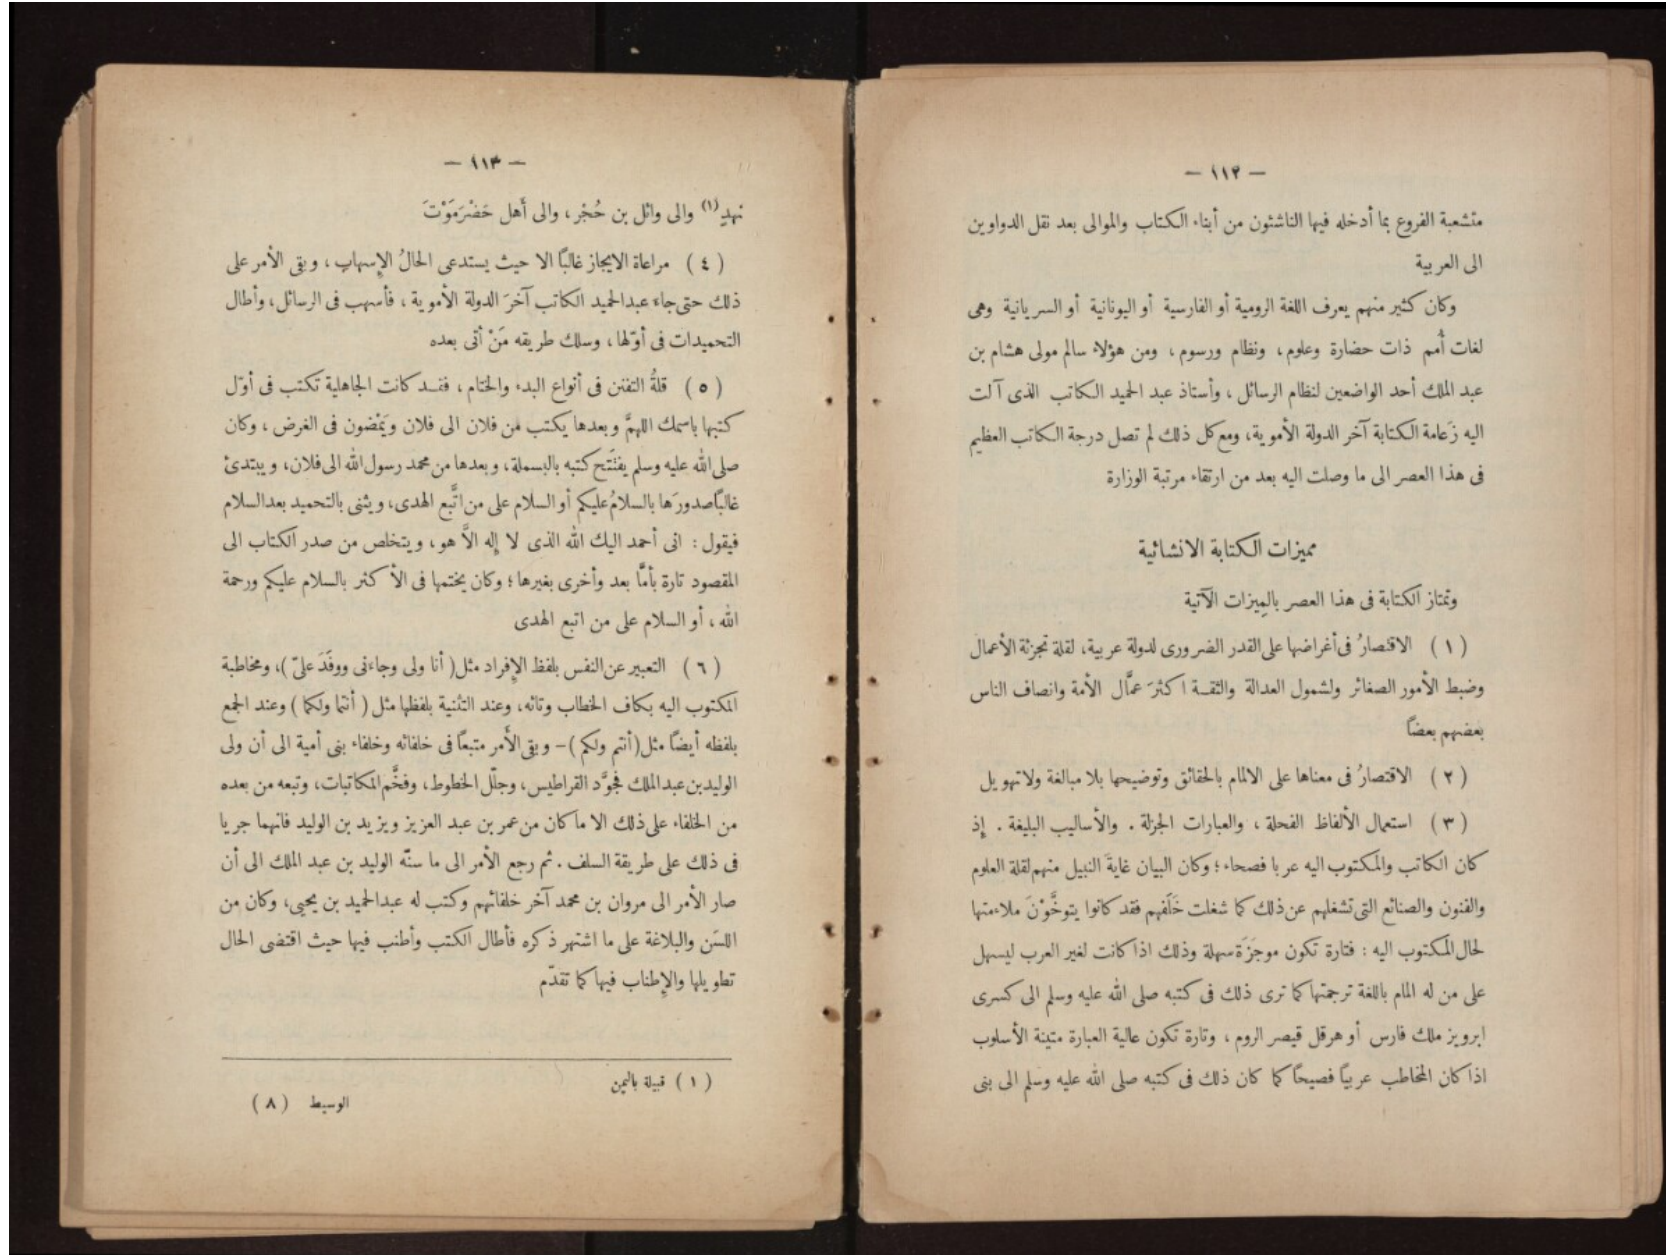 — ١١٢ —
متشعبة الفروع بما أدخله فيها الناشئون من أبناء الكتاب والموالى بعد نقل الدواوين
الى العربية
وكان كثير منهم يعرف اللغة الرومية أو الفارسية أو اليونانية أو السريانية وهى
لغات أُمم ذات حضارة وعلوم، ونظام ورسوم، ومن هؤلاء سالم مولى هشام بن
عبد الملك أحد الواضعين لنظام الرسائل، وأستاذ عبد الحميد الكاتب الذى آلت
اليه زَعامة الكتابة آخر الدولة الأموية، ومع كل ذلك لم تصل درجة الكاتب العظيم
فى هذا العصر الى ما وصلت اليه بعد من ارتقاء مرتبة الوزارة
مميزات الكتابة الانشائية
وتمتاز الكتابة فى هذا العصر بالمِيزات الآتية
(١) الاقتصارُ فى أغراضها على القدر الضرورى لدولة عربية، لقلة تجزئة الأعمال
وضبط الأمور الصغائر ولشمول العدالة والثقة اكثرَ عمَّال الأمة وانصاف الناس
بعضهم بعضاً
(٢) الاقتصارُ فى معناها على الالمام بالحقائق وتوضيحها بلا مبالغة ولا تهويل
(٣) استعمال الألفاظ الفحلة، والعبارات الجزلة. والأساليب البليغة. إذ
كان الكاتب والمكتوب اليه عربا فصحاء؛ وكان البيان غايةَ النبيل منهم لقلة العلوم
والفنون والصنائع التى تشغلهم عن ذلك كما شغلت خَلَفهم فقد كانوا يتوخَّوْنَ ملاءمتها
لحال المكتوب اليه: فتارة تكون موجَزَة سهلة وذلك اذا كانت لغير العرب ليسهل
على من له المام باللغة ترجمتها كما ترى ذلك فى كتبه صلى الله عليه وسلم الى كسرى
ابرويز ملك فارس أو هرقل قيصر الروم، وتارة تكون عالية العبارة متينة الأسلوب
اذا كان المخاطب عربياً فصيحاً كما كان ذلك فى كتبه صلى الله عليه وسلم الى بنى
— ١١٣ —
نهدٍ (١) والى وائل بن حُجْر، والى أهل حَضْرَمَوْتَ
(٤) مراعاة الايجاز غالباً الا حيث يستدعى الحالُ الإسهاب، وبقى الأمر على
ذلك حتى جاء عبد الحميد الكاتب آخرَ الدولة الأموية، فأسهب فى الرسائل، وأطال
التحميدات فى أوّلها، وسلك طريقه مَنْ أتى بعده
(٥) قلةُ التفنن فى أنواع البدء والختام، فقد كانت الجاهلية تكتب فى أوّل
كتبها باسمك اللهمَّ وبعدها يكتب من فلان الى فلان ويَمْضون فى الغرض، وكان
صلى الله عليه وسلم يفتَتح كتبه بالبسملة، وبعدها من محمد رسول الله الى فلان، ويبتدئ
غالباً صدورَها بالسلامُ عليكم أو السلام على من اتَّبع الهدى، ويثنى بالتحميد بعد السلام
فيقول: انى أحمد اليك الله الذى لا إله الاَّ هو، ويتخلص من صدر الكتاب الى
المقصود تارة بأمَّا بعد وأخرى بغيرها؛ وكان يختمها فى الأكثر بالسلام عليكم ورحمة
الله، أو السلام على من اتبع الهدى
(٦) التعبير عن النفس بلفظ الإفراد مثل (أنا ولى وجاءنى ووفَدَ علىّ)، ومخاطبة
المكتوب اليه بكاف الخطاب وتائه، وعند التثنية بلفظها مثل (أنتما ولكما) وعند الجمع
بلفظه أيضاً مثل (أنتم ولكم) – وبقى الأَمر متبعاً فى خلفائه وخلفاء بنى أمية الى أن ولى
الوليد بن عبد الملك فجوَّد القراطيس، وجلّل الخطوط، وفخَّم المكاتبات، وتبعه من بعده
من الخلفاء على ذلك الا ما كان من عمر بن عبد العزيز ويزيد بن الوليد فانهما جريا
فى ذلك على طريقة السلف. ثم رجع الأمر الى ما سنّه الوليد بن عبد الملك الى أن
صار الأمر الى مروان بن محمد آخر خلفائهم وكتب له عبد الحميد بن يحيى، وكان من
اللسَن والبلاغة على ما اشتهر ذكره فأطال الكتب وأطنب فيها حيث اقتضى الحال
تطويلها والإطناب فيها كما تقدّم
(١) قبيلة باليمن
الوسيط (٨)